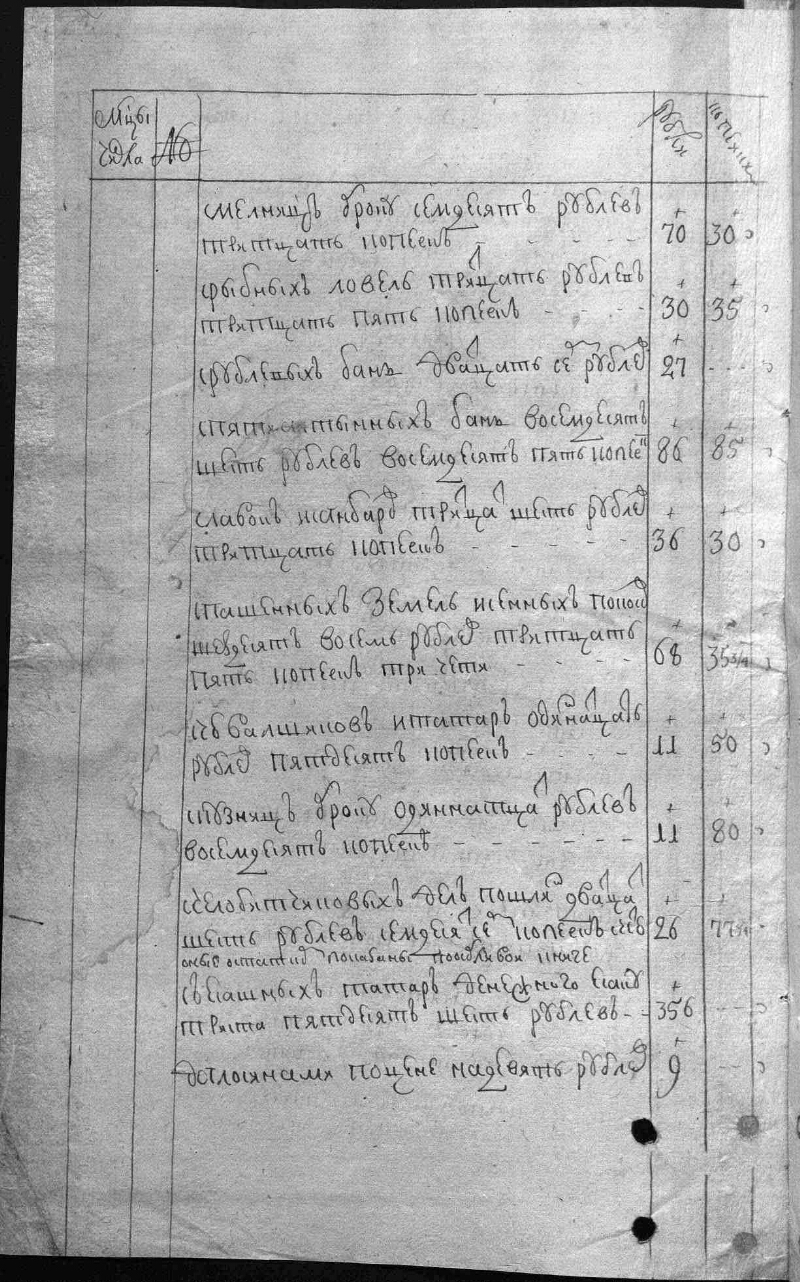 Мцы № рубли копейки
числа
смелницъ уроку семдесятъ рублевъ
тритцать копеекъ - - - - 70 30
рыбныхъ ловель трицать рублевъ
тритцать пять копеекъ - - - 30 35
рублевыхъ бань двацать се рублев 27 - - -
пятиалтынныхъ бань восемдесятъ
шесть рублевъ восемдесятъ пять копее 86 85
славокъ и анбаров трица шесть рублев
тритцать копеекъ - - - - 36 30
спашенныхъ земель и сенныхъ покос
шездесятъ восемь рублев тритцать
пять копеекъ три чети - - - 68 35 3/4
и татаръ одинацать
рублев пятдесятъ копеекъ - - - 11 50
скузницъ уроку одиннатца рублевъ
восемдесятъ копеекъ - - - - - - 11 80
счелобитчиковыхъ делъ пошлин двацa
шесть рублевъ семдеся се копеекъ 26 77
сясашныхъ татаръ денежного ясаку
триста пятдесятъ шесть рублевъ - - 356 - -
по цене на девять рублев 9 - -